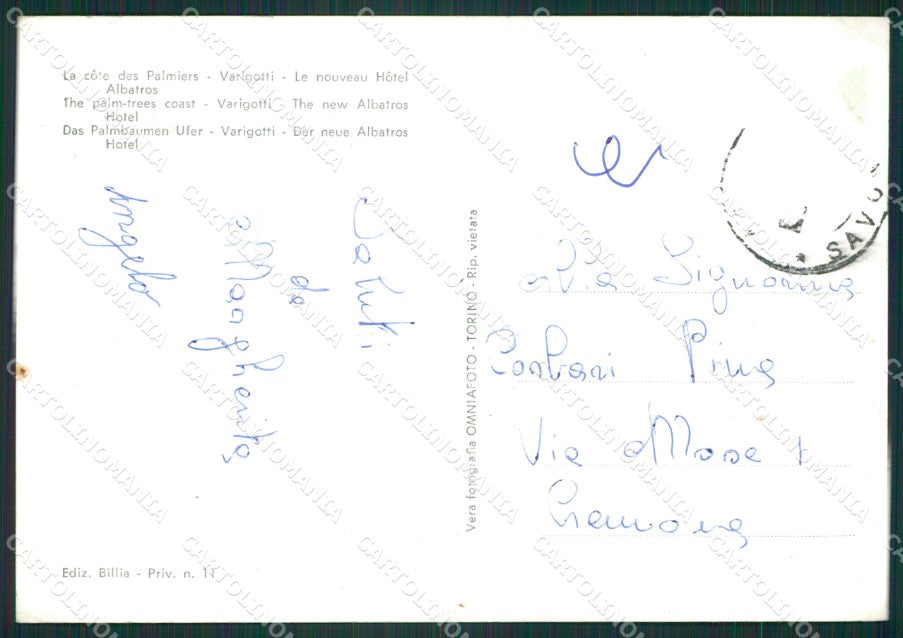 La côte des Palmiers - Varigotti - Le nouveau Hôtel
Albatros
The palm-trees coast - Varigotti - The new Albatros
Hotel
Das Palmbaumen Ufer - Varigotti - Der neue Albatros
Hotel
Saluti
da
Margherita
e
Angelo
Vera fotografia OMNIAFOTO - TORINO - Rip. vietata
SAVO
Alla Signorina
Contrari Pina
Via Mosa 1
Cremona
Ediz. Billia - Priv. n. 11
CARTOLINOMANIA